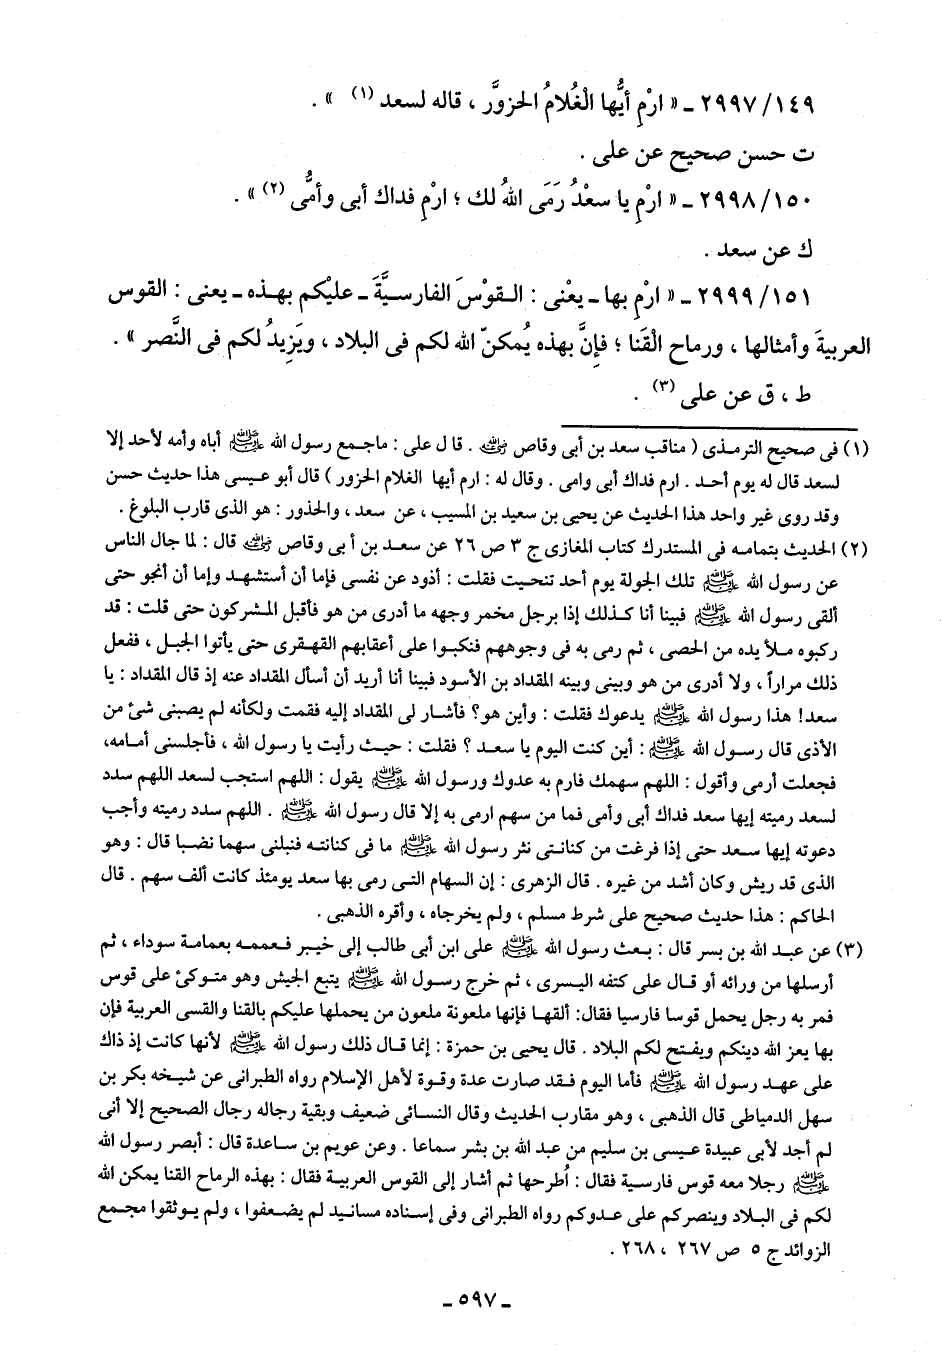 ٢٩٩٧/١٤٩ ـ « ارْمِ أيُّها الْغُلامُ الحزوَّر ، قاله لسعد (١) » .
ت حسن صحيح عن على .
٢٩٩٨/١٥٠ ـ « ارْمِ يا سعْدُ رَمَى اللهُ لك ؛ ارْمِ فداك أبى وأمُّى (٢) » .
ك عن سعد .
٢٩٩٩/١٥١ ـ « ارْمِ بها ـ يعْنى : القوْسَ الفارسيَّةَ ـ عليْكم بهذه ـ يعنى : القوس
العربيةَ وأمثالها ، ورماح الْقَنا ؛ فإِنَّ بهذه يُمكنّ الله لكم فى البلاد ، ويَزِيدُ لكم فى النَّصر » .
ط ، ق عن على (٣) .
(١) فى صحيح الترمذى ( مناقب سعد بن أبى وقاص ﷺ . قال على : ماجمع رسول الله ﷺ أباه وأمه لأحد إلا
لسعد قال له يوم أحد . ارم فداك أبى وامى . وقال له : ارم أيها الغلام الحزور ) قال أبو عيسى هذا حديث حسن
وقد روى غير واحد هذا الحديث عن يحيى بن سعيد بن المسيب ، عن سعد ، والحذور : هو الذى قارب البلوغ .
(٢) الحديث بتمامه فى المستدرك كتاب المغازى ج ٣ ص ٢٦ عن سعد بن أبى وقاص رضي الله عنه قال : لما جال الناس
عن رسول الله ﷺ تلك الجولة يوم أحد تنحيت فقلت : أذود عن نفسى فإما أن أستشهد وإما أن أنجو حتى
ألقى رسول الله ﷺ فبينا أنا كذلك إذا برجل مخمر وجهه ما أدرى من هو فأقبل المشركون حتى قلت : قد
ركبوه ملأ يده من الحصى ، ثم رمى به فى وجوههم فنكبوا على أعقابهم القهقرى حتى يأتوا الجبل ، ففعل
ذلك مراراً ، ولا أدرى من هو وبينى وبينه المقداد بن الأسود فبينا أنا أريد أن أسأل المقداد عنه إذ قال المقداد : يا
سعد! هذا رسول الله ﷺ يدعوك فقلت : وأين هو؟ فأشار لى المقداد إليه فقمت ولكأنه لم يصبنى شئ من
الأذى قال رسول الله ﷺ : أين كنت اليوم يا سعد ؟ فقلت : حيث رأيت يا رسول الله ، فأجلسنى أمامه،
فجعلت أرمى وأقول : اللهم سهمك فارم به عدوك ورسول الله ﷺ يقول : اللهم استجب لسعد اللهم سدد
لسعد رميته إيها سعد فداك أبى وأمى فما من سهم ارمى به إلا قال رسول الله ﷺ . اللهم سدد رميته وأجب
دعوته إيها سعد حتى إذا فرغت من كنانتى نثر رسول الله ﷺ ما فى كنانته فنبلنى سهما نضبا قال : وهو
الذى قد ريش وكان أشد من غيره . قال الزهرى : إن السهام التى رمى بها سعد يومئذ كانت ألف سهم . قال
الحاكم : هذا حديث صحيح على شرط مسلم ، ولم يخرجاه ، وأقره الذهبى .
(٣) عن عبد الله بن بسر قال : بعث رسول الله ﷺ على ابن أبى طالب إلى خيبر فعممه بعمامة سوداء ، ثم
أرسلها من ورائه أو قال على كتفه اليسرى ، ثم خرج رسول الله ﷺ يتبع الجيش وهو متوكئ على قوس
فمر به رجل يحمل قوسا فارسيا فقال: ألقها فإنها ملعونة ملعون من يحملها عليكم بالقنا والقسى العربية فإن
بها يعز الله دينكم ويفتح لكم البلاد . قال يحيى بن حمزة : إنما قال ذلك رسول الله ﷺ لأنها كانت إذ ذاك
على عهد رسول الله ﷺ فأما اليوم فقد صارت عدة وقوة لأهل الإسلام رواه الطبرانى عن شيخه بكر بن
سهل الدمياطى قال الذهبى ، وهو مقارب الحديث وقال النسائى ضعيف وبقية رجاله رجال الصحيح إلا أنى
لم أجد لأبى عبيدة عيسى بن سليم من عبد الله بن بشر سماعا . وعن عويم بن ساعدة قال : أبصر رسول الله
ﷺ رجلا معه قوس فارسية فقال : اُطرحها ثم أشار إلى القوس العربية فقال : بهذه الرماح القنا يمكن الله
لكم فى البلاد وينصركم على عدوكم رواه الطبرانى وفى إسناده مسانيد لم يضعفوا ، ولم يوثقوا مجمع
الزوائد ج ٥ ص ٢٦٧ ، ٢٦٨ .
ـ ٥٩٧ ـ